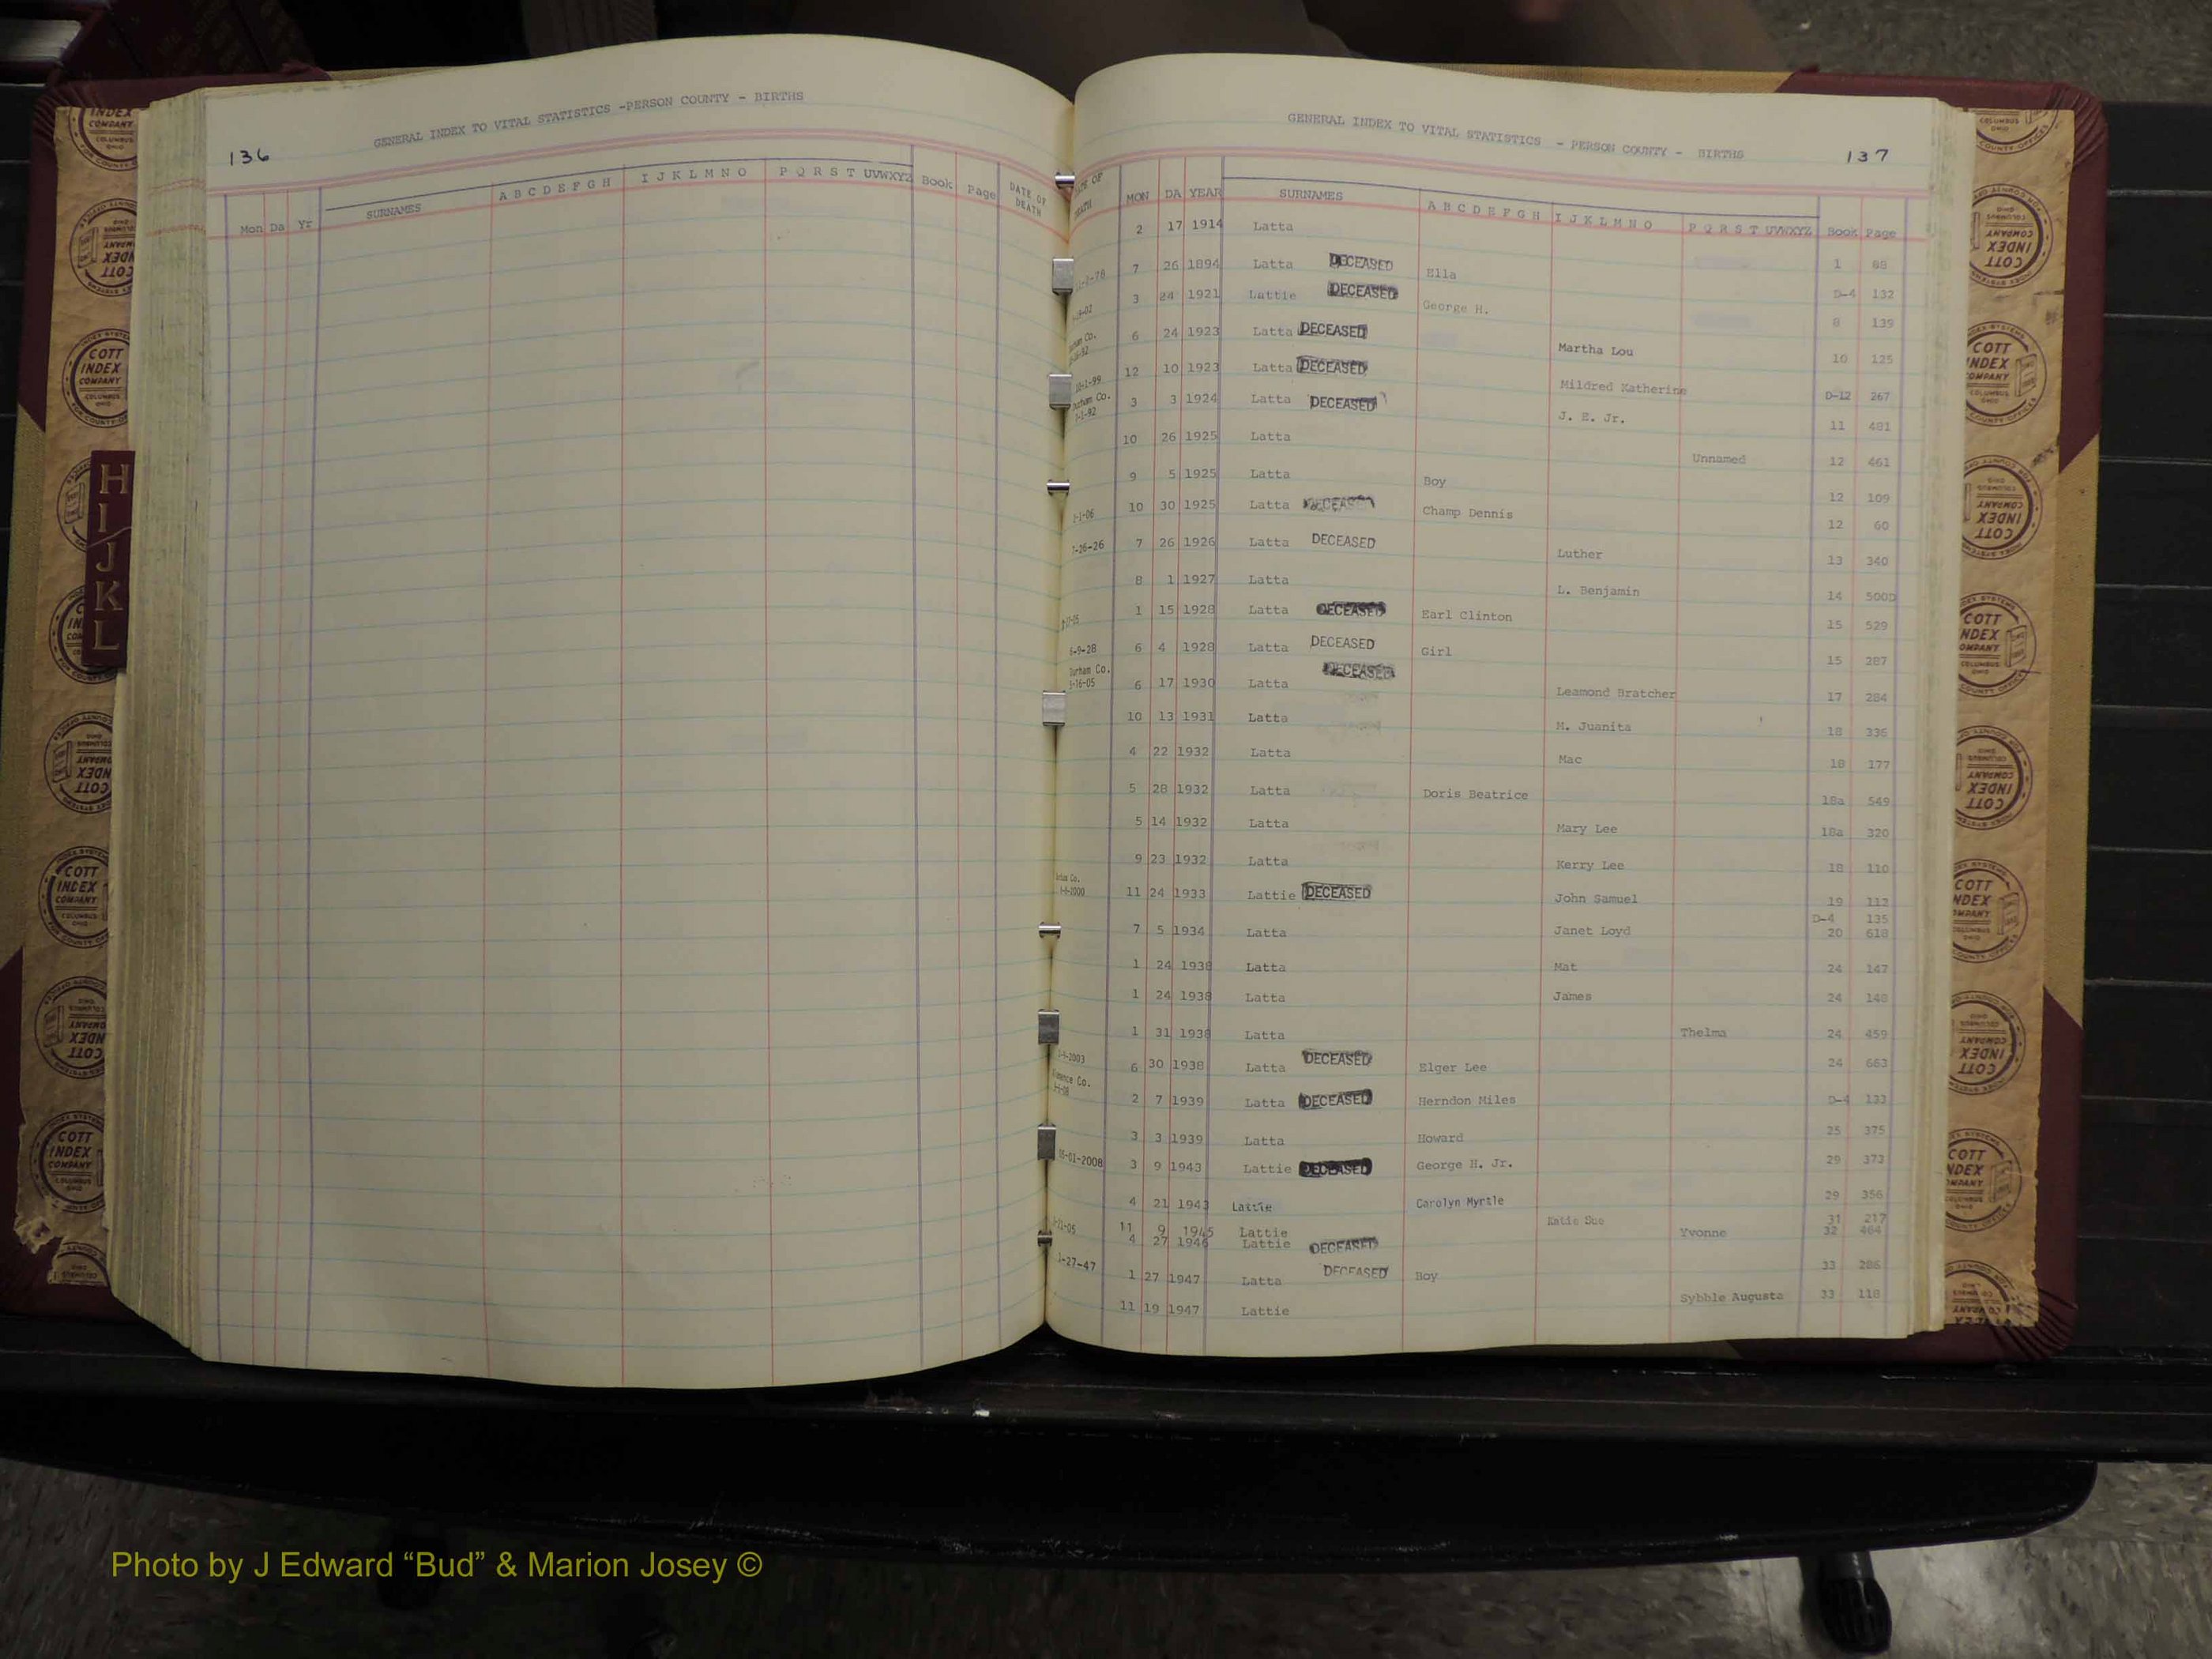 GENERAL INDEX TO VITAL STATISTICS -PERSON COUNTY - BIRTHS
136
Mon Da Yr SURNAMES A B C D E F G H I J K L M N O P Q R S T UVWXYZ Book Page DATE OF DEATH
H I J K L
GENERAL INDEX TO VITAL STATISTICS - PERSON COUNTY - BIRTHS
137
DEATH MON DA YEAR SURNAMES A B C D E F G H I J K L M N O P Q R S T UVWXYZ Book Page
2 17 1914 Latta 1 88
7 26 1894 Latta DECEASED Ella D-4 132
3 24 1921 Lattie DECEASED George H. 8 139
6 24 1923 Latta DECEASED Martha Lou 10 125
12 10 1923 Latta DECEASED Mildred Katherine D-12 267
10-1-99
Durham Co.
3 3 1924 Latta DECEASED J. E. Jr. 11 481
10 26 1925 Latta Unnamed 12 461
9 5 1925 Latta Boy 12 109
10 30 1925 Latta DECEASED Champ Dennis 12 60
7-26-26 7 26 1926 Latta DECEASED Luther 13 340
8 1 1927 Latta L. Benjamin 14 500D
1 15 1928 Latta DECEASED Earl Clinton 15 529
6-9-28 6 4 1928 Latta DECEASED Girl 15 287
Durham Co.
6 17 1930 Latta DECEASED Leamond Bratcher 17 284
10 13 1931 Latta M. Juanita 18 336
4 22 1932 Latta Mac 18 177
5 28 1932 Latta Doris Beatrice 18a 549
5 14 1932 Latta Mary Lee 18a 320
9 23 1932 Latta Kerry Lee 18 110
11 24 1933 Lattie DECEASED John Samuel 19 112
D-4 135
7 5 1934 Latta Janet Loyd 20 618
1 24 1938 Latta Mat 24 147
1 24 1938 Latta James 24 148
1 31 1938 Latta Thelma 24 459
6 30 1938 Latta DECEASED Elger Lee 24 663
2 7 1939 Latta DECEASED Herndon Miles D-4 133
3 3 1939 Latta Howard 25 375
05-01-2008 3 9 1943 Lattie DECEASED George H. Jr. 29 373
4 21 1943 Lattie Carolyn Myrtle 29 356
11 9 1945 Lattie Katie Sue 31 217
4 27 1946 Lattie DECEASED Yvonne 32 464
1-27-47 1 27 1947 Latta DECEASED Boy 33 286
11 19 1947 Lattie Sybble Augusta 33 118
COTT INDEX COMPANY
COLUMBUS OHIO
Photo by J Edward “Bud” & Marion Josey ©